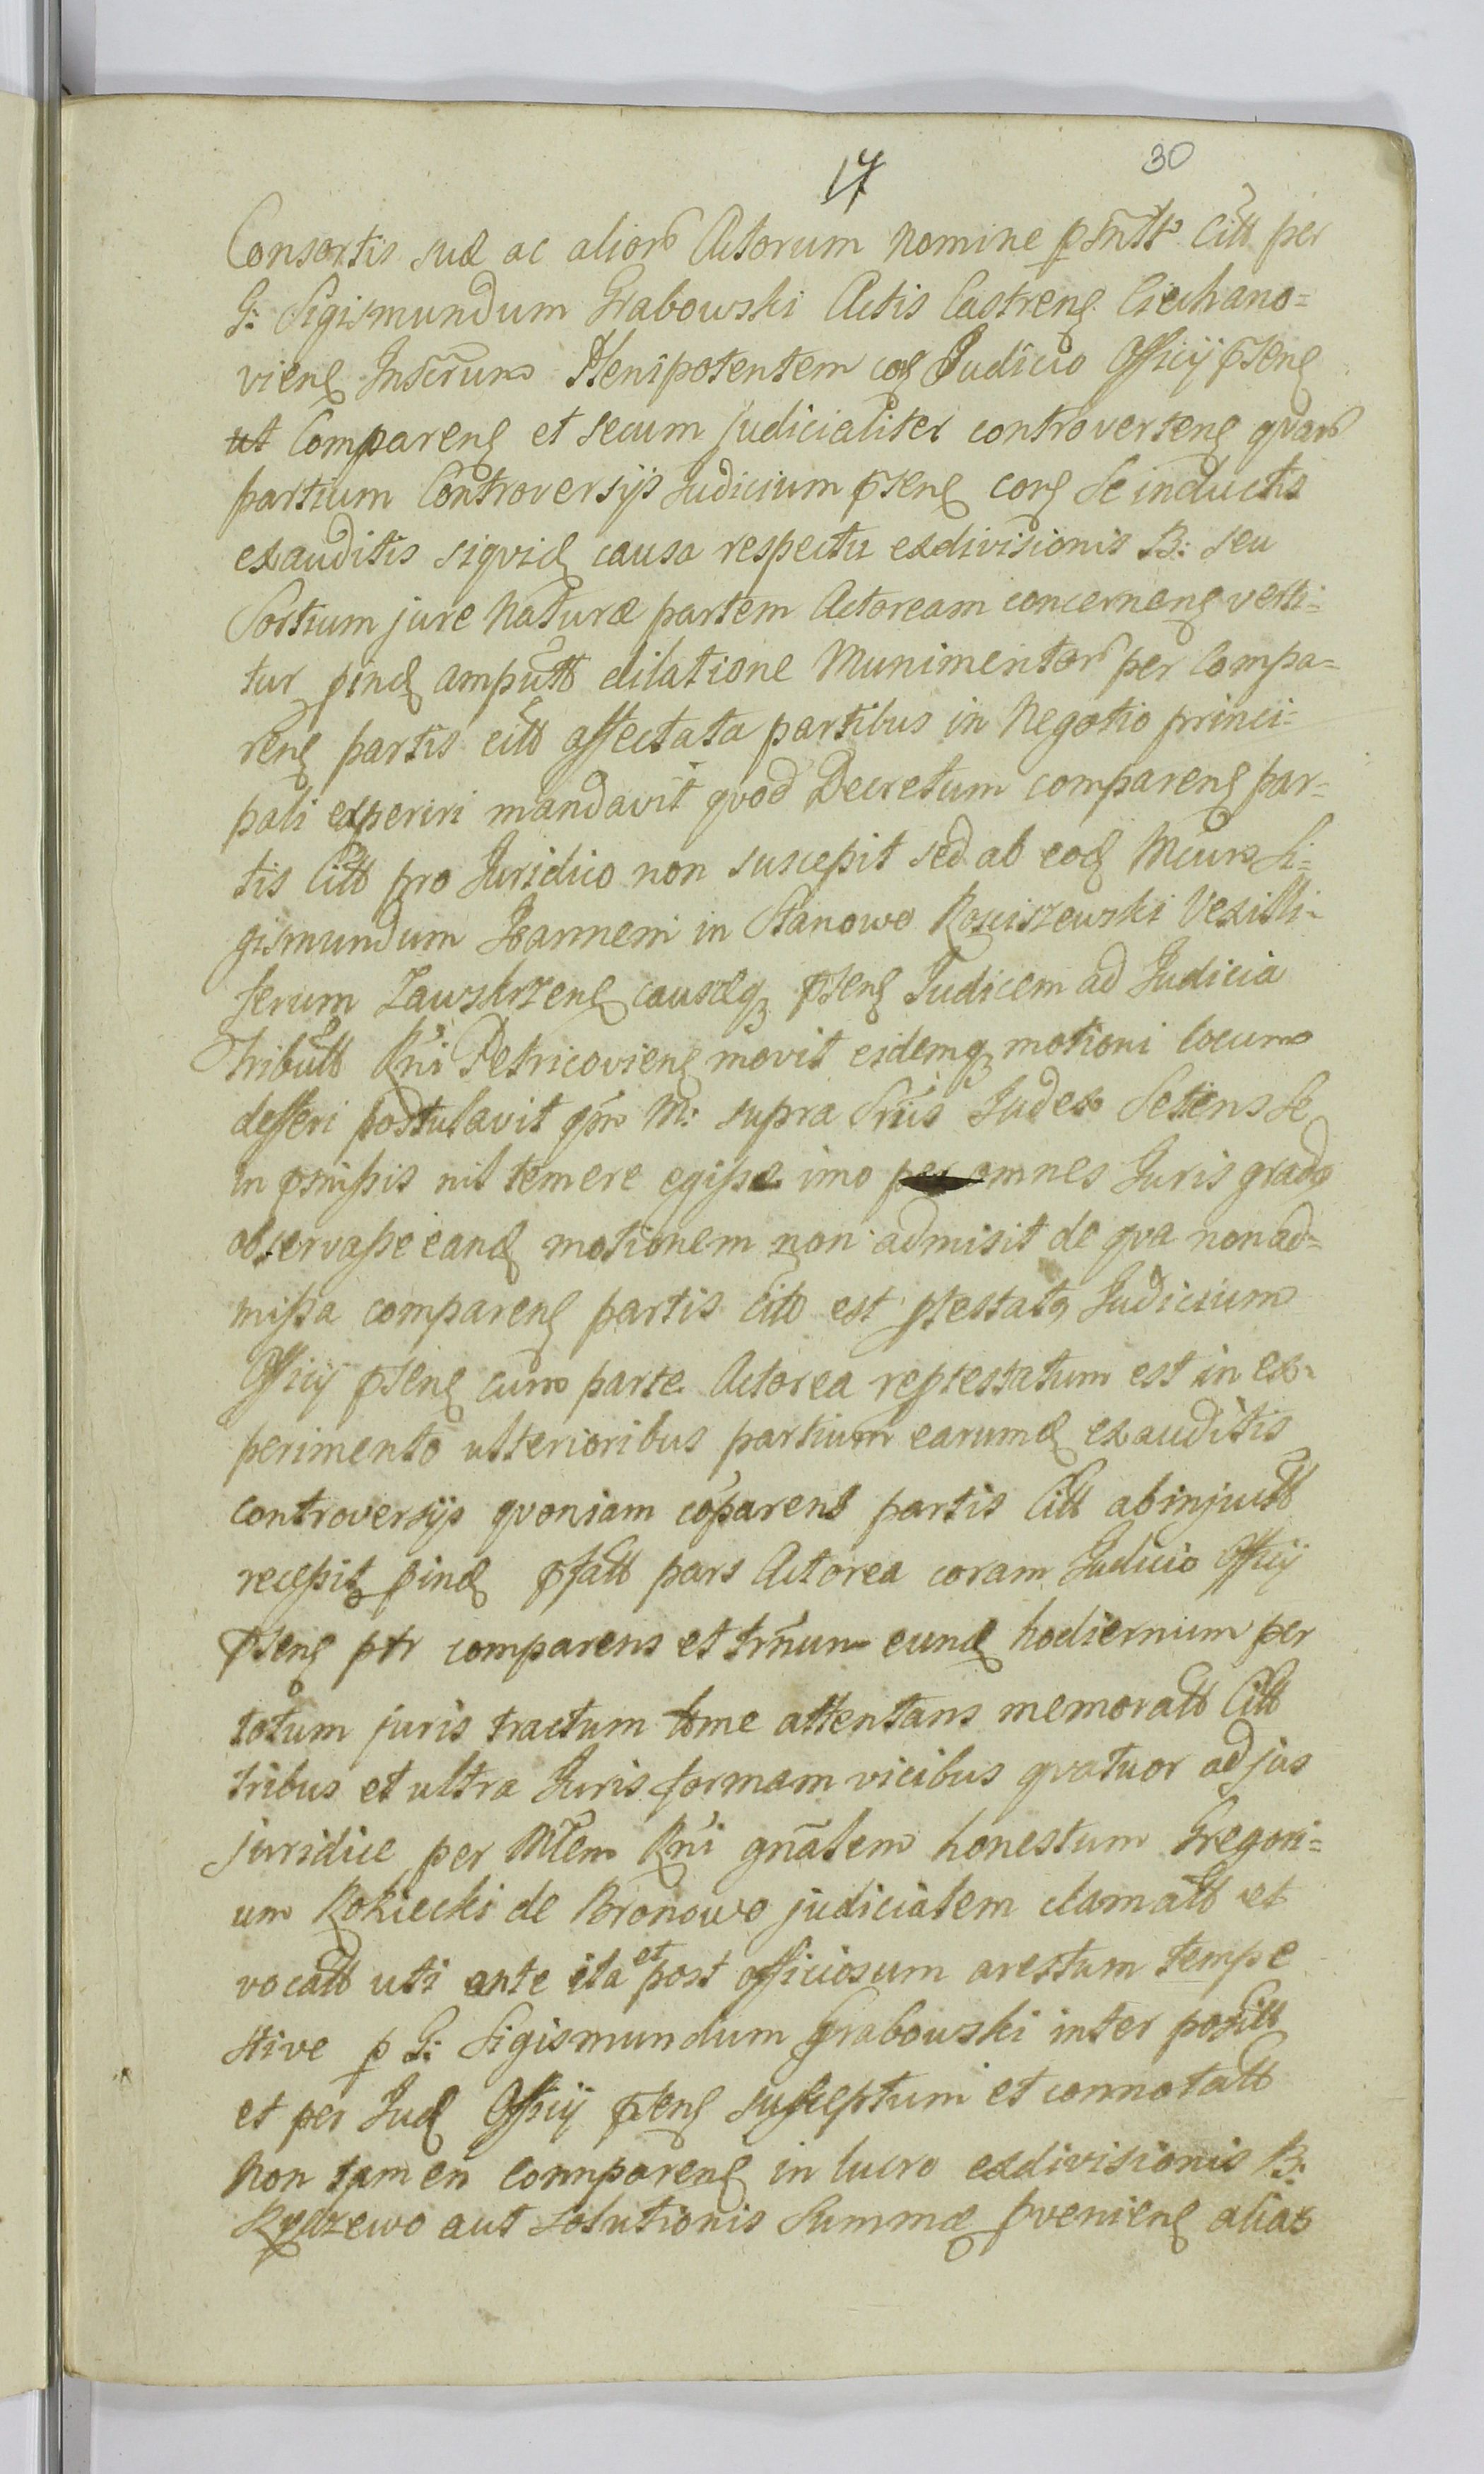 17 30
Consortis suæ ac alior Actorum Nomine pñtt Citt per
G: Sigismundum Grabowski Actis Castren Ciechano=
vien Inscrum Plenipotentem co Judicio Officij pten
ut Comparen et secum judicialiter controverten quar
partium Controversijs Judicium pten cor se inductis
exauditis siquid causa respectu exdivisionis B: seu
Sortium jure Naturæ partem Actoream concernen verti=
tur pind amputt dilatione Munimentor per Compa=
ren partis citt affectata partibus in Negotio princi=
pali experiri mandavit quod Decretum comparen par=
tis Citt pro Juridico non suscepit sed ab eod Mcum Si=
gismundum Joannem in Stanowo Rosciszewski Vexilli=
ferum Zawskrzen causæq pten Judicem ad Judicia
Tributt Rni Petricovien movit eidemq motioni locum
defferi postulavit qm M: supra Sriis Judex Setiens Se
in pmissis nil temere egisse imo per omnes Juris grad
observasse eand motionem non admisit de qva non ad=
missa comparen partis Citt est ptestat Judicium
Officij pten cum parte Actorea reptestatum est in ex=
perimento ulterioribus partium earumd exauditis
controversijs qvoniam cóparens partis Citt ab injuctt
recessit pind pfatt pars Actorea coram Judicio Officij
pten ptr comparens et trñum eund hodiernum per
totum juris tractum ltme attentans memoratt Citt
tribus et ultra Juris formam vicibus qvatuor ad jus
juridice per Mlem Rni gñalem honestum Gregori=
um Rokicki de Bronowo judicialem clamatt et
vocatt uti ante ita et post officiosum arestum tempe
stive p G: Sigismundum Grabowski inter positt
et per Jud Officij pten susceptum et connotatt
Non tamen connparen in lucro exdivisionis B:
Rydzewo aut Solutionis Summæ pvenien alias